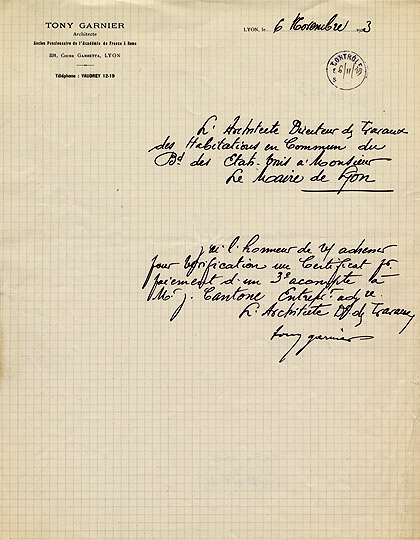 TONY GARNIER
Architecte
Ancien Pensionnaire de l'Académie de France à Rome
331, Cours Gambetta, LYON
Téléphone : VAUDREY 12-19
LYON, le 6 Novembre 3
CONTRÔLE
L'Architecte Directeur ds Travaux
des Habitations en Commun du
Bd des Etats-Unis à Monsieur
Le Maire de Lyon
J'ai l'honneur de vs adresser
pour vérification un Certificat pr
paiement d'un 3e acompte à
Mr J. Cantone Entrepr adjre.
L'Architecte Dr ds Travaux
tony garnier